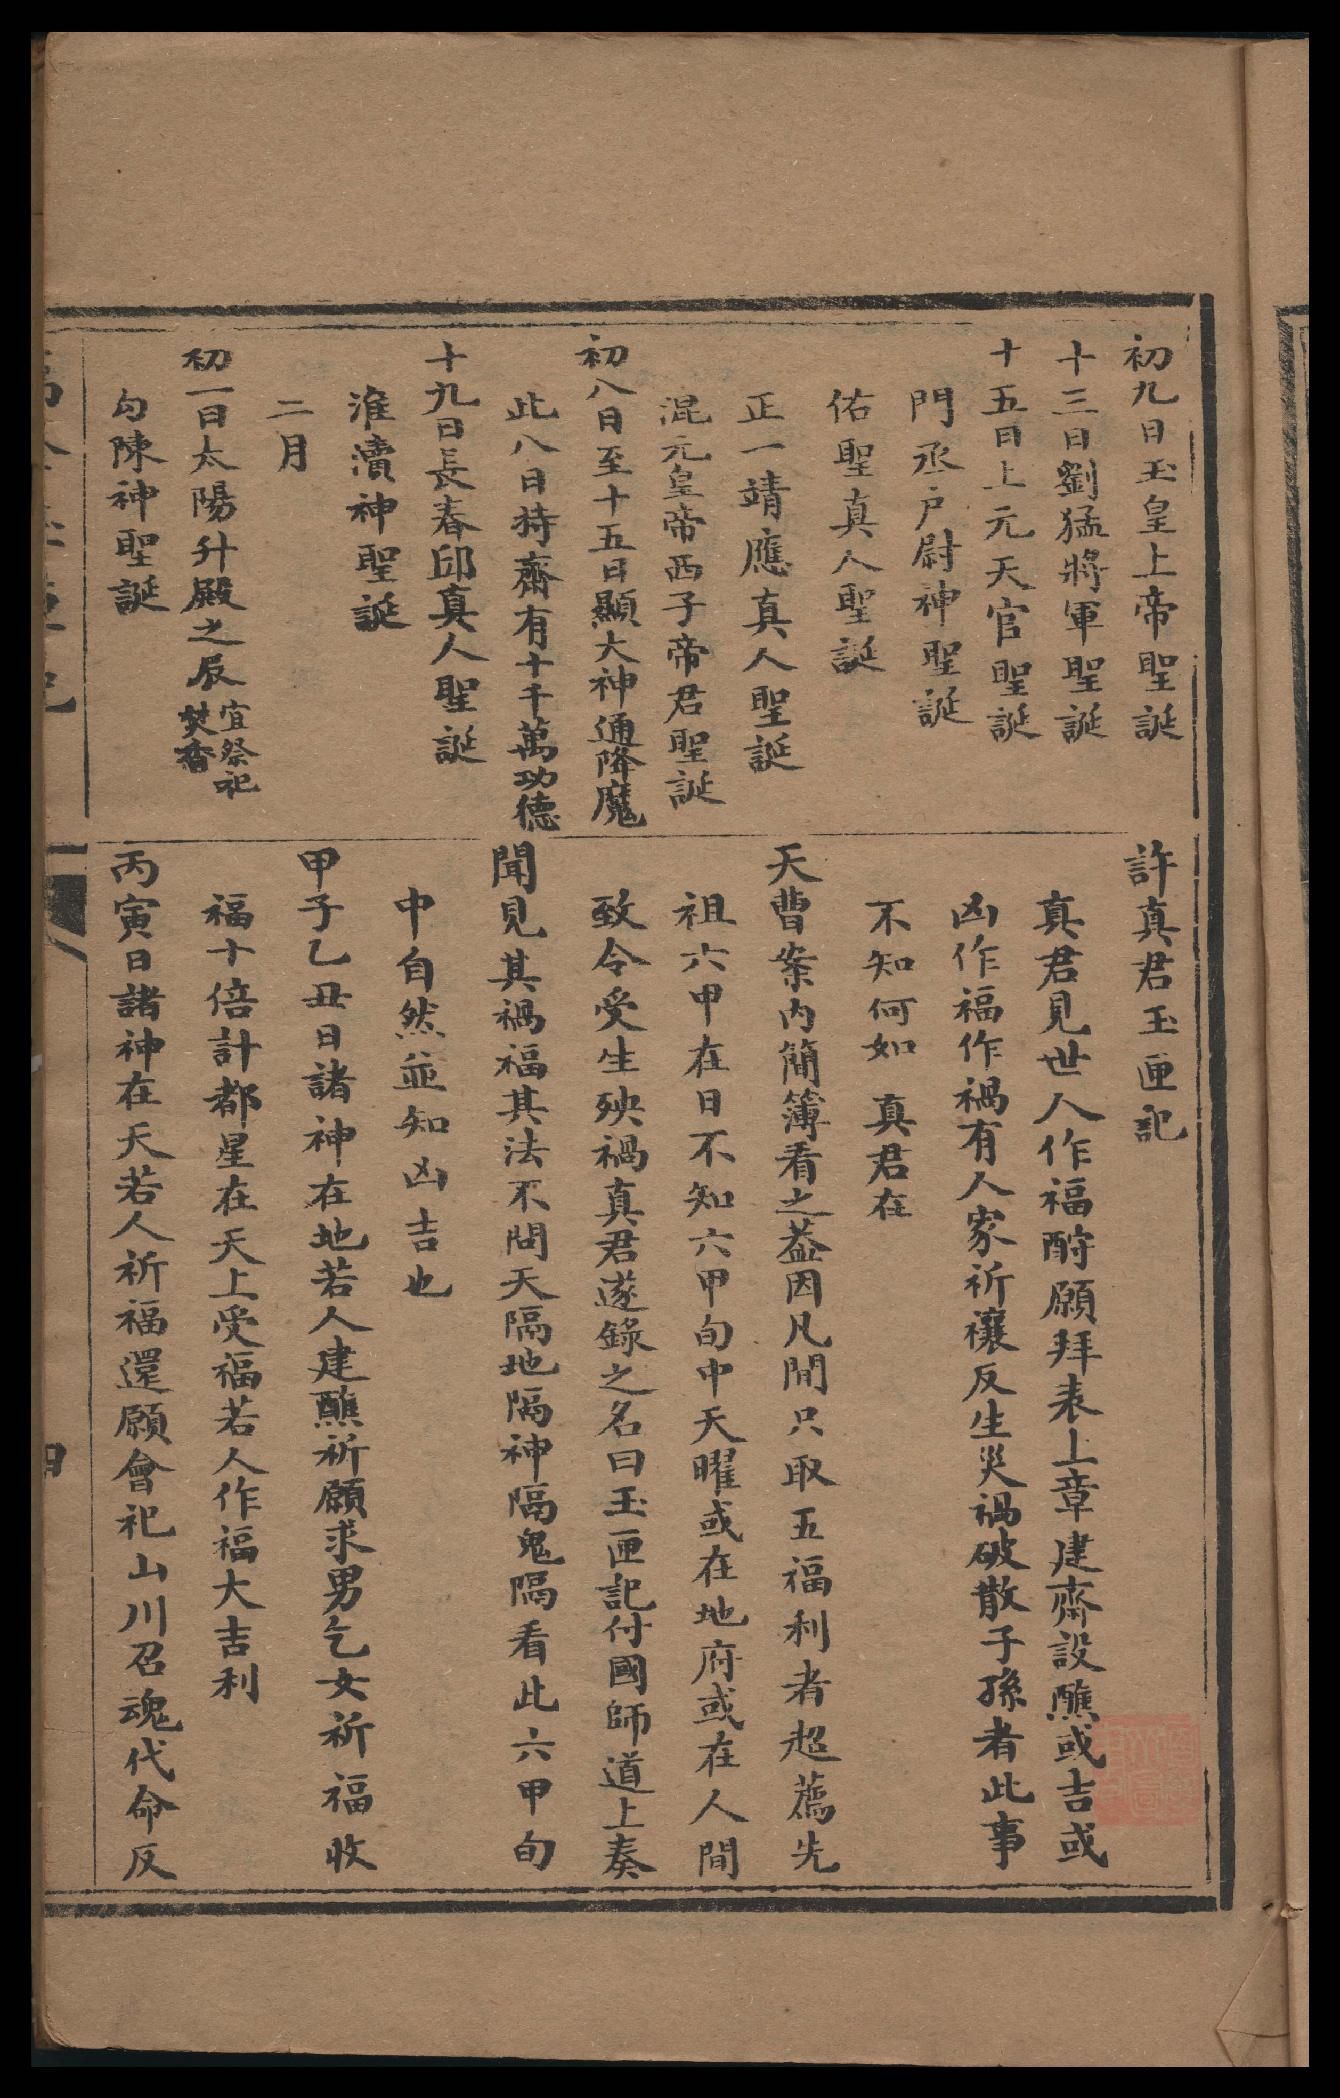 初九日玉皇上帝聖誕
十三日劉猛將軍聖誕
十五日上元天官聖誕
門丞户尉神聖誕
佑聖真人聖誕
正一靖應真人聖誕
混元皇帝西子帝君聖誕
初八日至十五日顯大神通降魔
此八日持齋有十千萬功德
十九日長春邱真人聖誕
淮瀆神聖誕
二月
初一日太陽升殿之辰宜祭祀焚香
勾陳神聖誕
許真君玉匣記
真君見世人作福酧願拜表上章建齋設醮或吉或
凶作福作禍有人家祈禳反生災禍破散子孫者此事
不知何如 真君在
天曹案内簡簿看之葢因凡間只取五福利者超薦先
祖六甲在日不知六甲旬中天曜或在地府或在人間
致令受生殃禍真君遂錄之名曰玉匣記付國師道上奏
聞見其禍福其法不問天隔地隔神隔鬼隔看此六甲旬
中自然並知凶吉也
甲子乙丑日諸神在地若人建醮祈願求男乞女祈福收
福十倍計都星在天上受福若人作福大吉利
丙寅日諸神在天若人祈福還願會祀山川召魂代命反